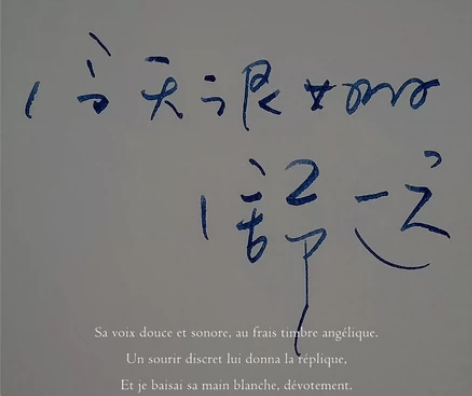 今天很
Sa voix douce et sonore, au frais timbre angélique.
Un sourir discret lui donna la réplique,
Et je baisai sa main blanche, dévotement.